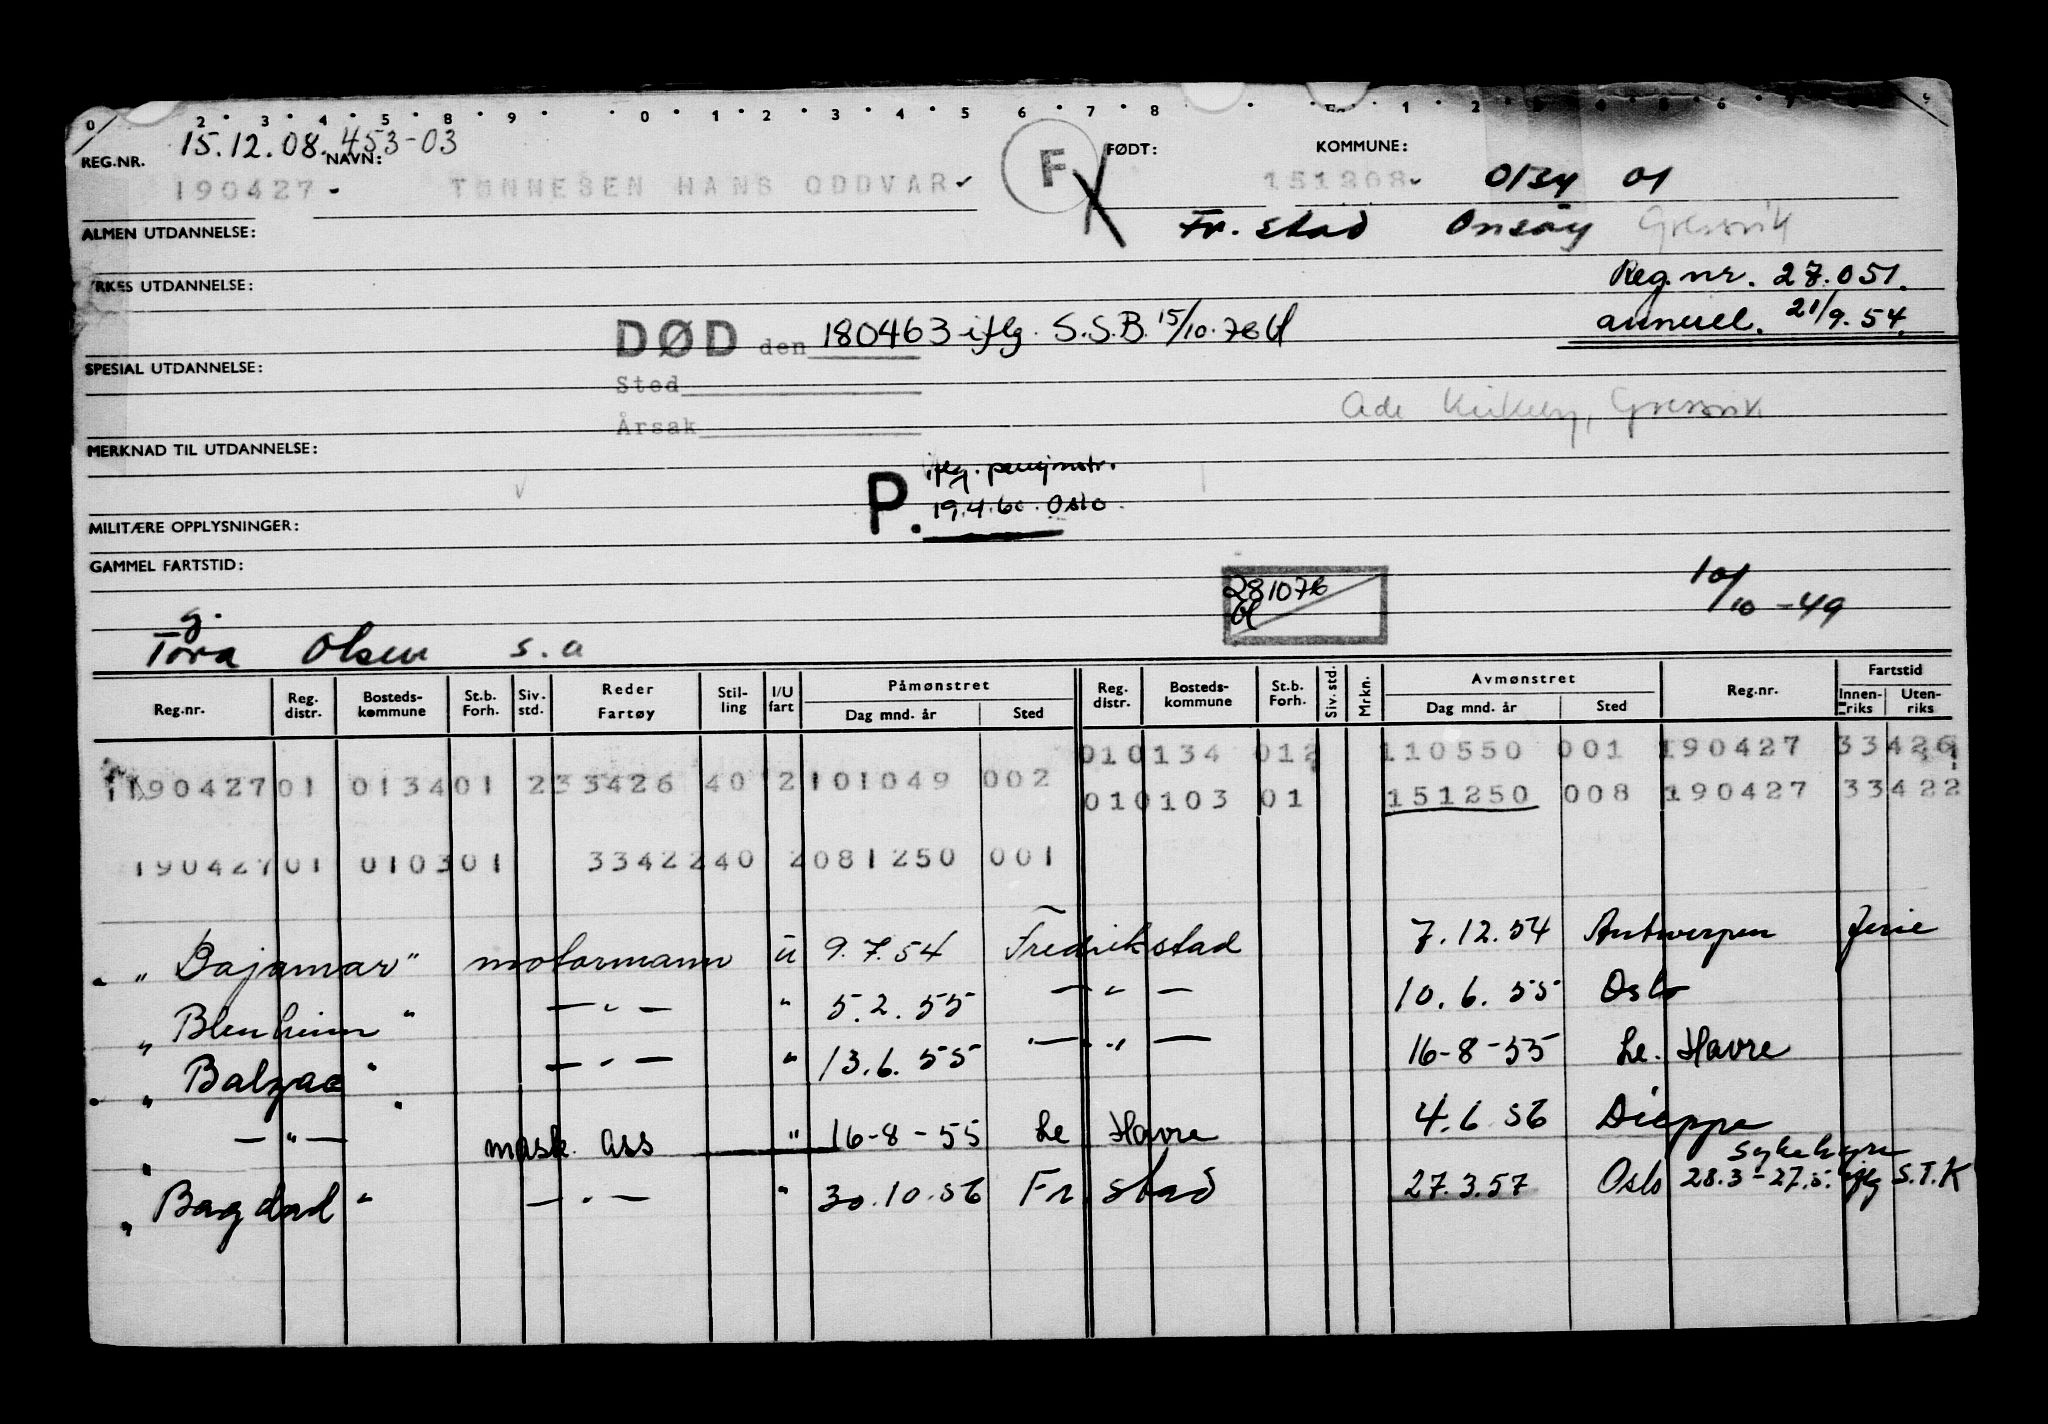 0 2 3 4 5 8 9 0 1 2 3 4 5 6 7 8 1 2 3 4 5 6 7 9
15.12.08.453-03
REG.NR. NAVN: F FØDT: KOMMUNE:
190427 - TØNNESEN HANS ODDVAR 151208 0134 01
Fr. stad Onsøy Gressvik
ALMEN UTDANNELSE:
Reg.nr. 27.051.
YRKES UTDANNELSE:
annuell. 21/9.54.
DØD den 180463 iflg. S.S.B. 15/10.76
SPESIAL UTDANNELSE:
Sted
Kirkeby, Gressvik
Årsak
MERKNAD TIL UTDANNELSE:
P. iflg. pensjonstr.
19.4.60. Oslo.
MILITÆRE OPPLYSNINGER:
GAMMEL FARTSTID:
281076
10/10-49
g.
Tora Olsen s.a
Reg.nr. Reg. distr. Bosteds-kommune St.b. Forh. Siv. std. Reder Fartøy Stil-ling I/U fart Påmønstret Dag mnd. år Sted Reg. distr. Bosteds-kommune St.b. Forh. Siv. std. Mrkn. Avmønstret Dag mnd. år Sted Reg.nr. Fartstid Innen-riks Uten-riks
010134 012 110550 001 190427 33426
190427 01 013401 233426 40 2 101049 002
010103 01 151250 008 190427 33422
190427 01 010301 33422 40 2 081250 001
" Bajamar " motormann u 9.7.54 Fredrikstad 7.12.54 Antwerpen ferie
" Blenheim " — " — " 5.2.55 — " — 10.6.55 Oslo
" Balzac " — " — " 13.6.55 — " — 16-8-55 Le. Havre
— " — mask. ass " 16-8-55 Le Havre 4.6.56 Dieppe
" Bagdad " — " — " 30.10.56 Fr. stad 27.3.57 Oslo 28.3-27.5. iflg S.T.K